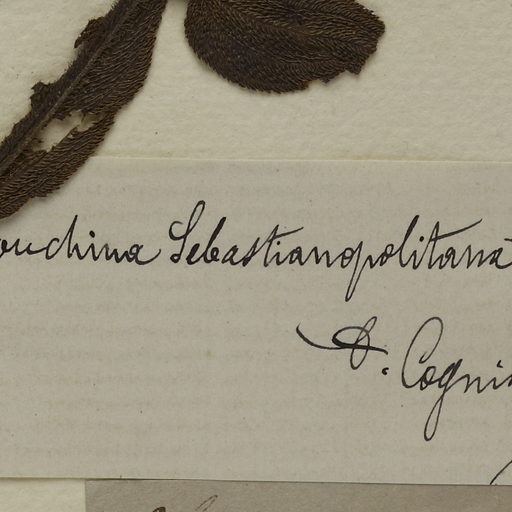 ouchina Sebastianopolitana
A. Cogni